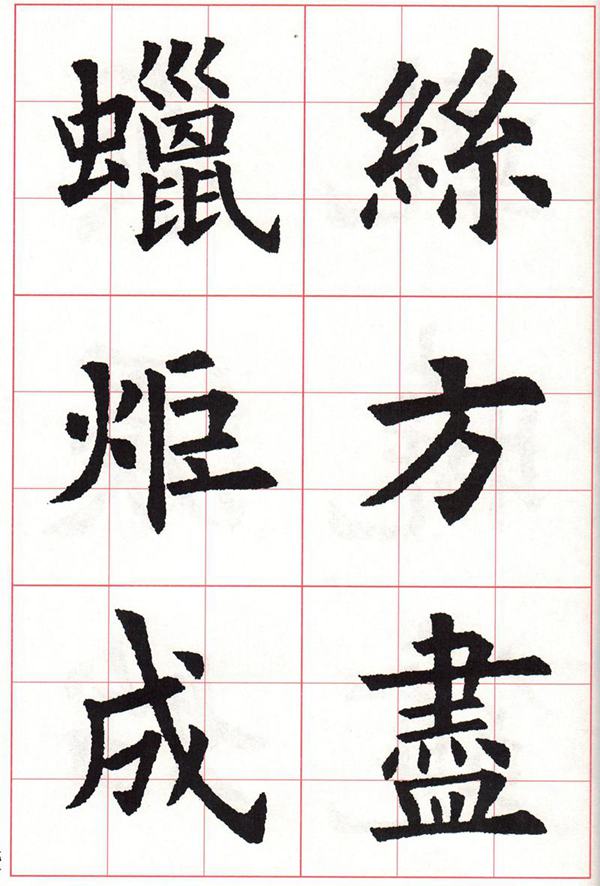 絲方盡
蠟炬成